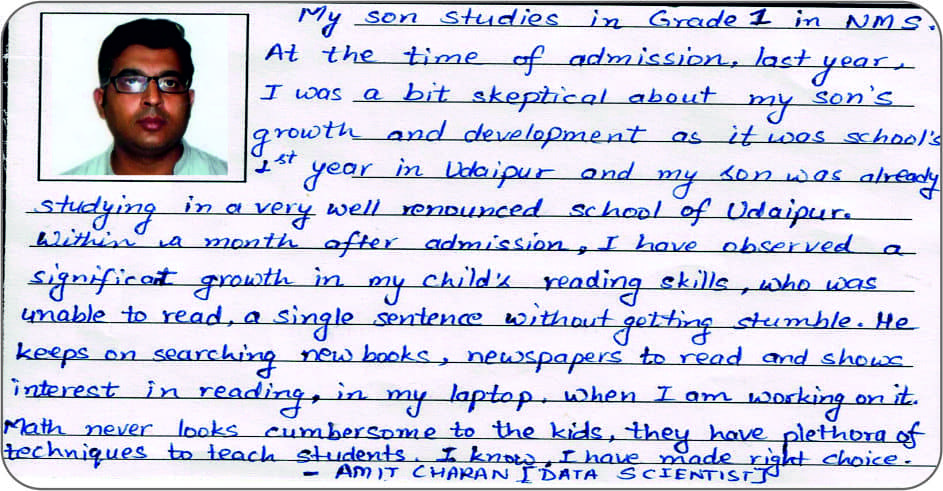 My son studies in Grade 1 in NMS.
At the time of admission, last year,
I was a bit skeptical about my son's
growth and development as it was school's
1st year in Udaipur and my son was already
studying in a very well renounced school of Udaipur.
Within a month after admission, I have observed a
significat growth in my child's reading skills, who was
unable to read, a single sentence without getting stumble. He
keeps on searching new books, newspapers to read and shows
interest in reading, in my laptop, when I am working on it.
Math never looks cumbersome to the kids, they have plethora of
techniques to teach students. I know, I have made right choice.
- AMIT CHARAN [DATA SCIENTIST]